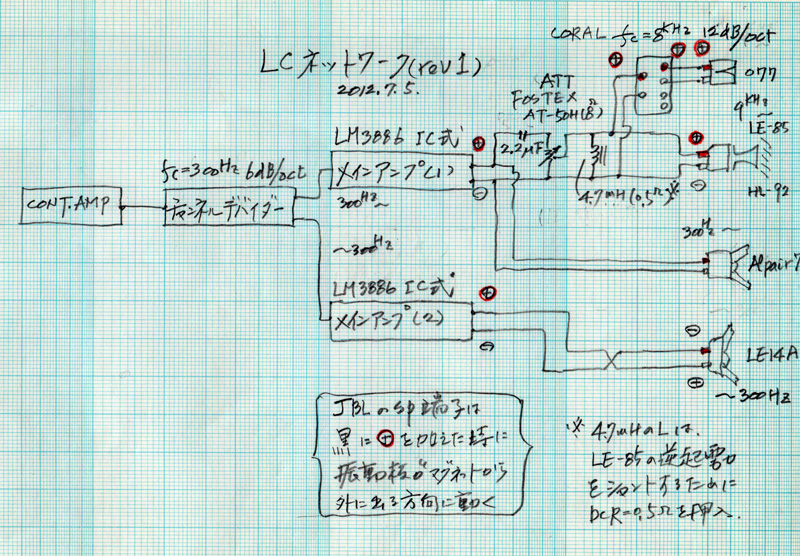 CORAL fc=8KHz 12dB/oct
LCネットワーク(rev1)
2012.7.5.
ATT
FOSTEX
AT-50H(8Ω)
077
9KHz~
LE-85
HL-92
LM3886 IC式
メインアンプ(1)
300Hz~
2.2μF
4.7mH(0.5Ω)※
fc=300Hz 6dB/oct
CONT.AMP
チャンネルデバイダー
300Hz~
Alpair7
~300Hz
LM3886 IC式
メインアンプ(2)
LE14A
~300Hz
JBLのSP端子は
黒に⊕を加えた時に
振動板がマグネットから
外に出る方向に動く
※ 4.7mHのLは、
LE-85の逆起電力
をショートするために
DCR=0.5Ωを挿入.